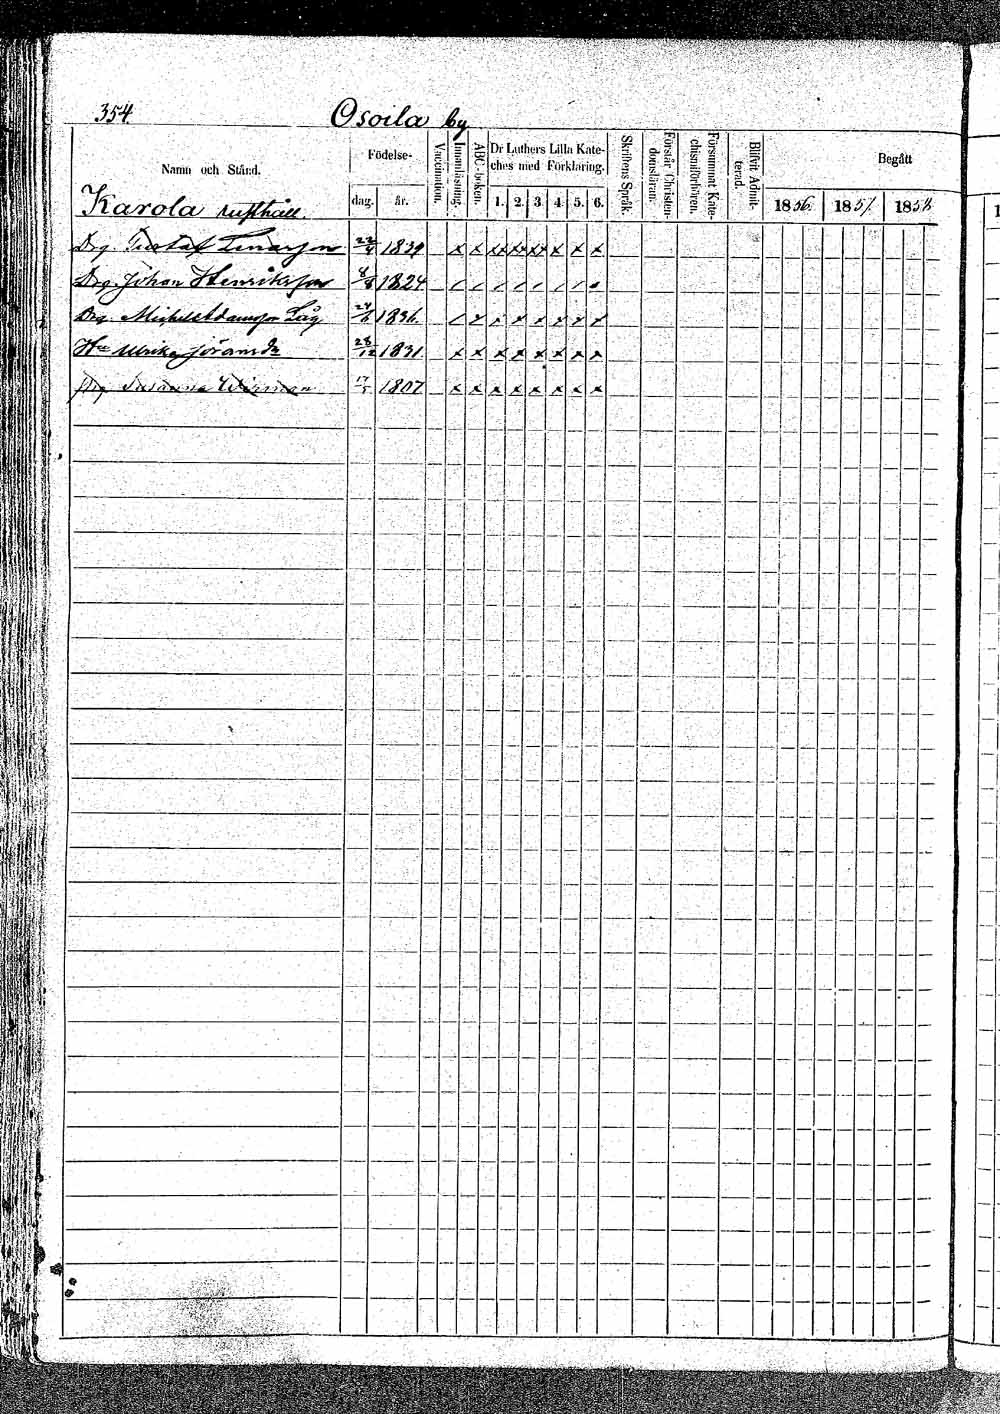 354. Osoila by
Namn och Stånd.
Födelse-
dag. år.
Vaccination.
Innanläsning.
ABC-boken.
Dr Luthers Lilla Kate-
ches med Förklaring.
1. 2. 3. 4. 5. 6.
Skriftens Språk.
Förstår Christen-
domsläran.
Försummat Kate-
chismiförhören.
Blifvit Admit-
terad.
Begått
1856. 1857. 1858.
Karola rusthåll.
Drg. Gustaf 22/4 1839 x x xx xx xx x x x
Drg. Johan Henriksson 8/8 1824 / / / / / / /
Drg. Michel Adamsson 1836. / x x x x x x x
Hu Ulrika Jöransdr 28/12 1831 x x x x x x x x
Susanna 17/5 1807 x x x x x x x x